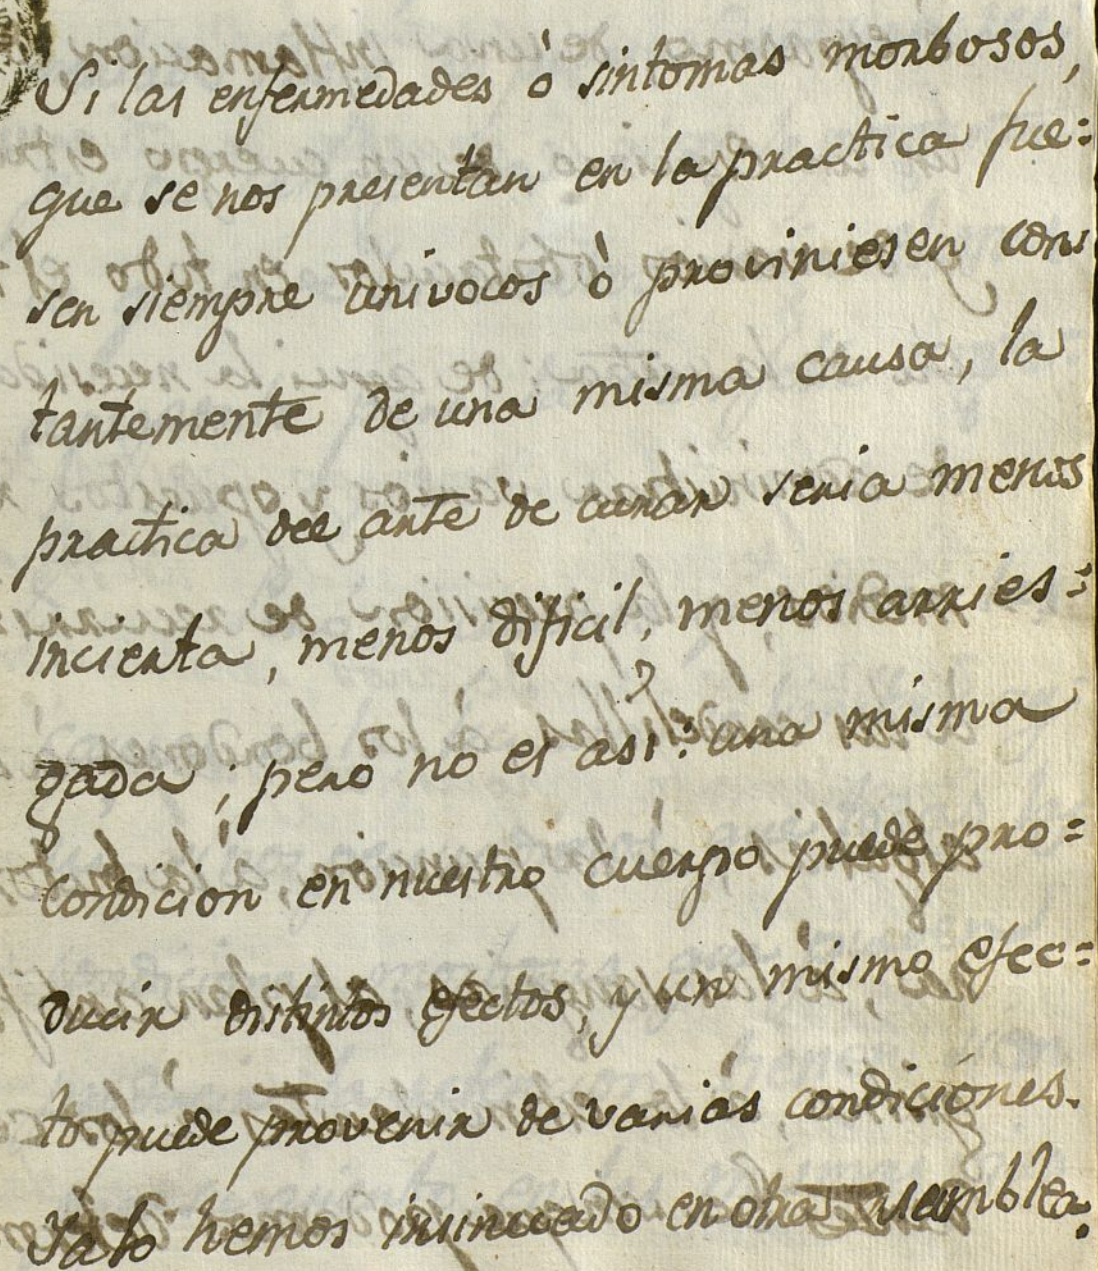 Si las enfermedades ó sintomas morbosos,
que se nos presentan en la practica fue=
sen siempre univocos ò proviniesen cons
tantemente de una misma causa, la
practica del arte de curar seria menos
incierta, menos dificil, menos arries=
gada; pero no es asi: una misma
condicion en nuestro cuerpo puede pro=
ducir distintos efectos, y un mismo efec=
to puede provenir de varias condiciones.
Ya lo hemos insinuado en otra asamblea: